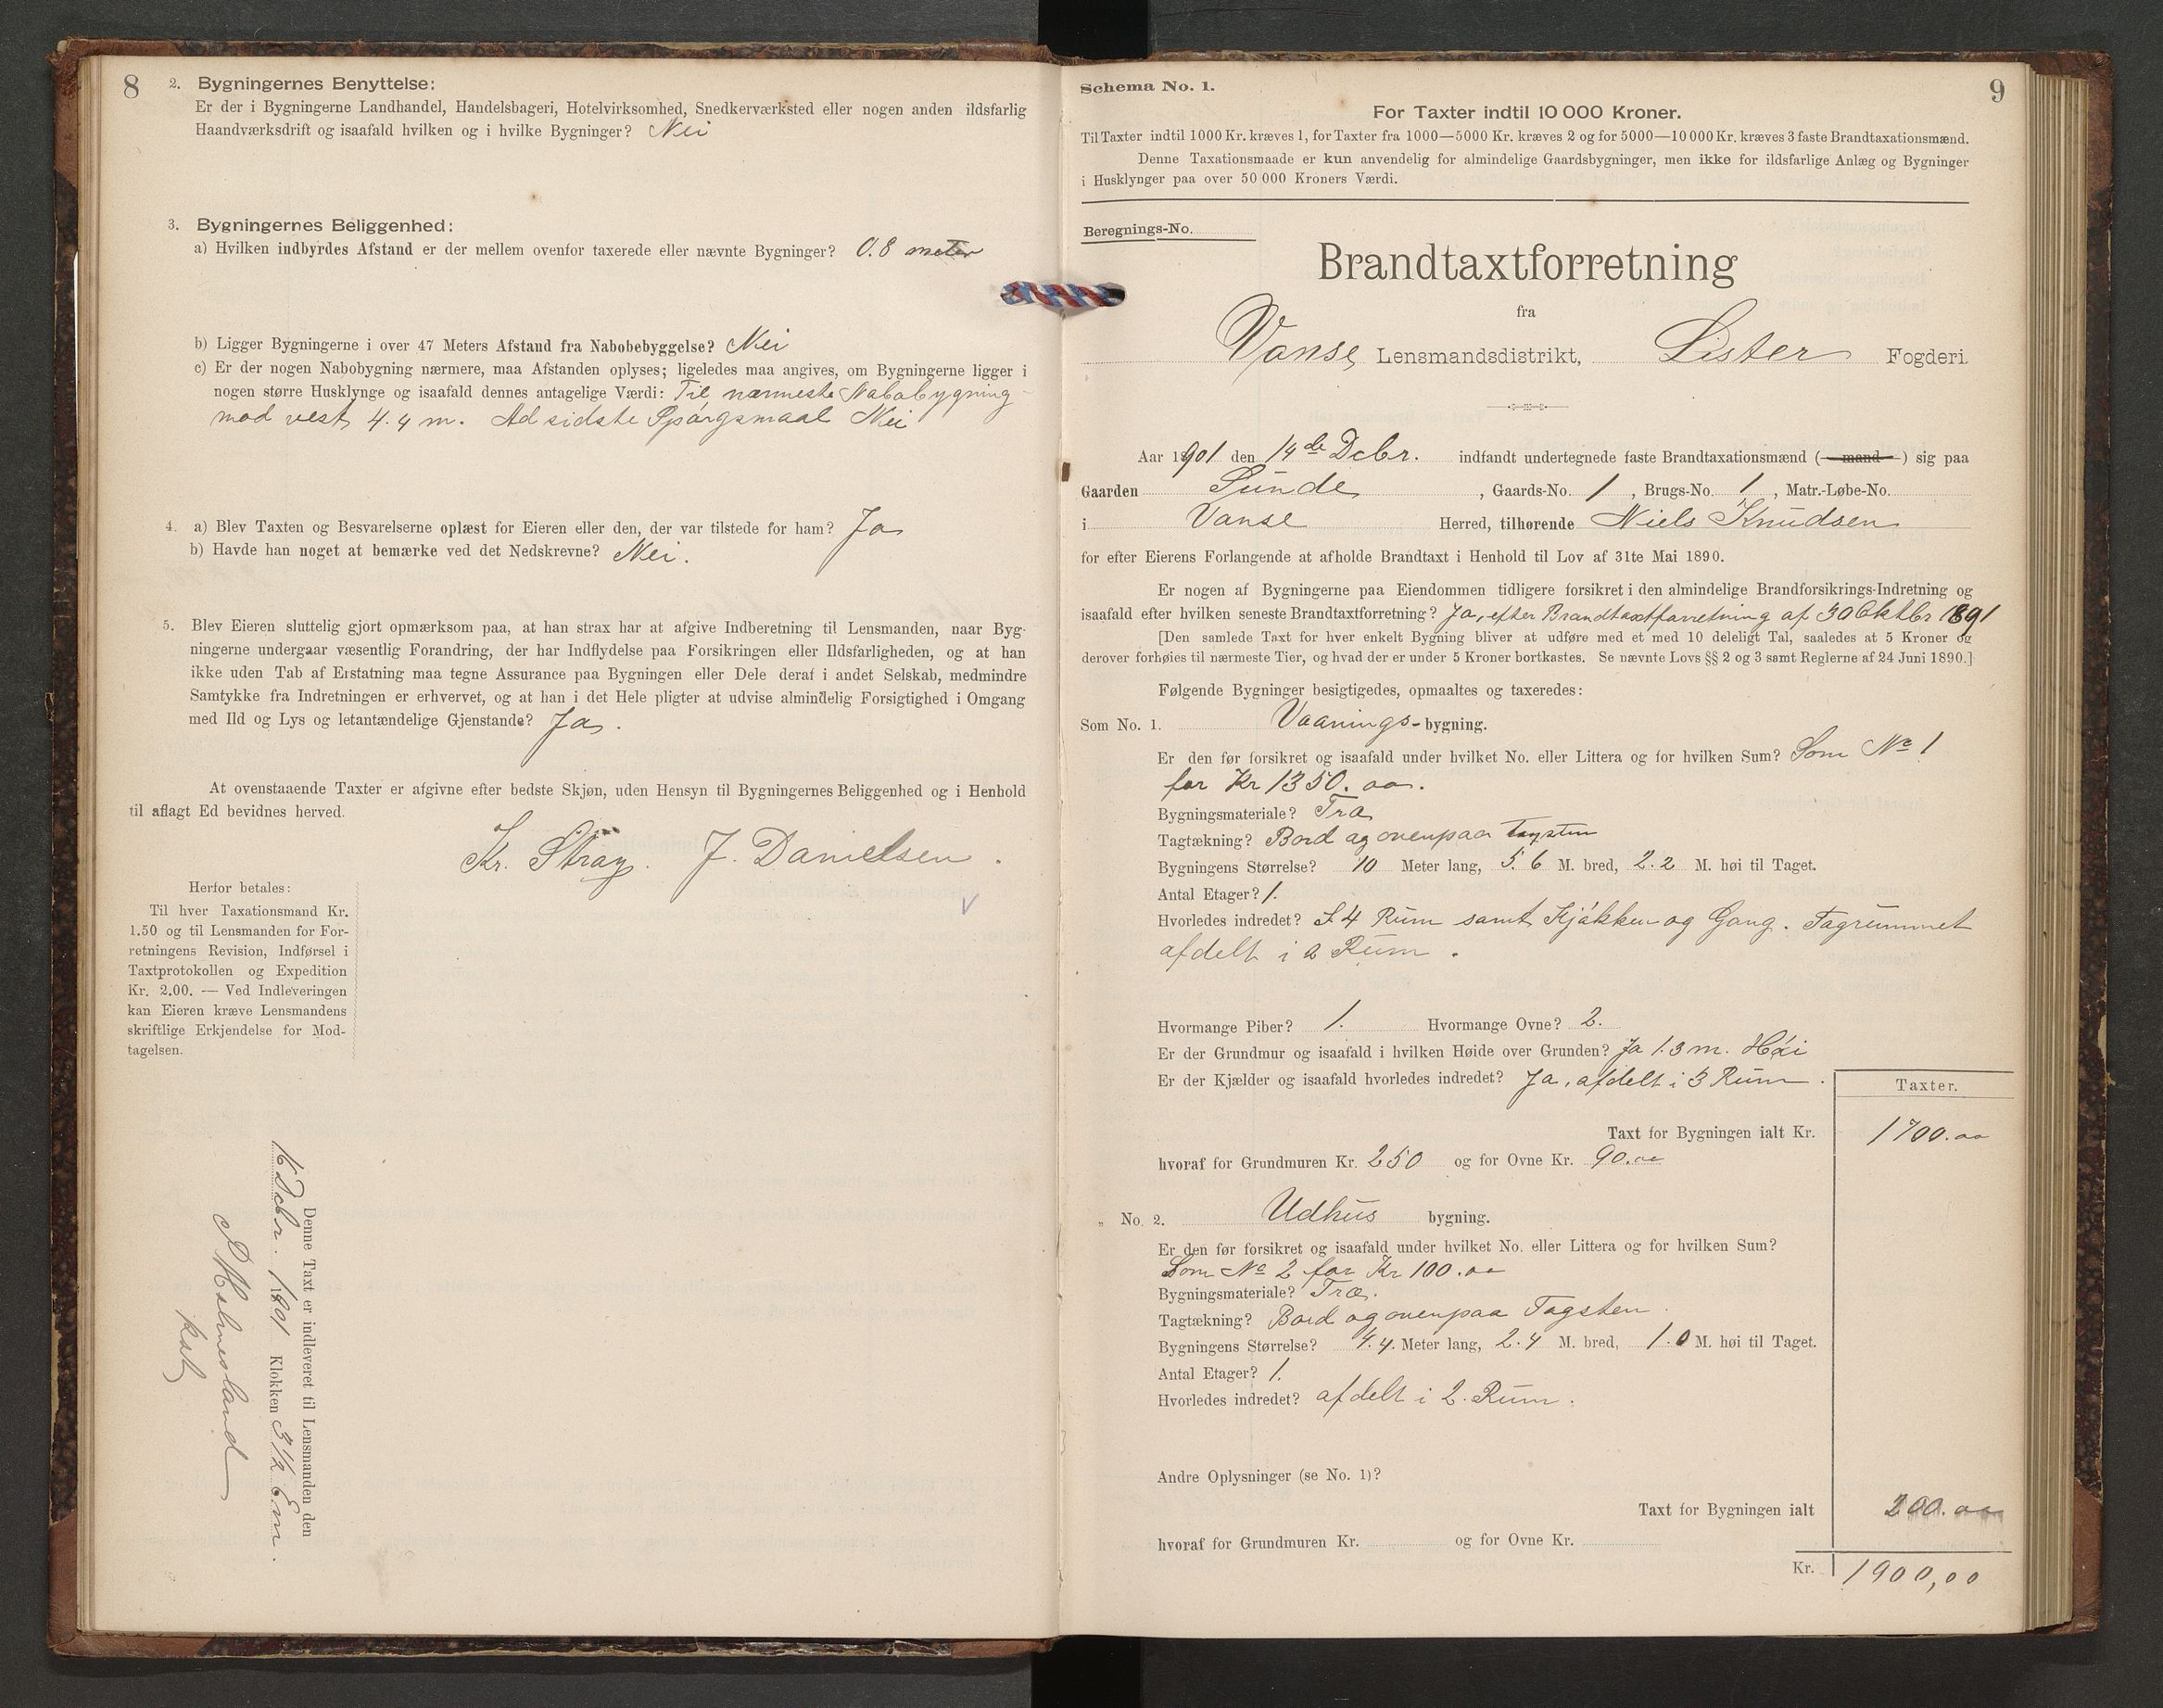 8
2. Bygningernes Benyttelse:
Er der i Bygningerne Landhandel, Handelsbageri, Hotelvirksomhed, Snedkerværksted eller nogen anden ildsfarlig
Haandværksdrift og isaafald hvilken og i hvilke Bygninger? Nei
3. Bygningernes Beliggenhed:
a) Hvilken indbyrdes Afstand er der mellem ovenfor taxerede eller nævnte Bygninger? 0.8 meter
b) Ligger Bygningerne i over 47 Meters Afstand fra Nabobebyggelse? Nei
c) Er der nogen Nabobygning nærmere, maa Afstanden oplyses; ligeledes maa angives, om Bygningerne ligger i
nogen større Husklynge og isaafald dennes antagelige Værdi: Til nærmeste Nabobygning
mod vest 4.4 m. Ad sidste Spørgsmaal Nei
4. a) Blev Taxten og Besvarelserne oplæst for Eieren eller den, der var tilstede for ham? Ja
b) Havde han noget at bemærke ved det Nedskrevne? Nei.
5. Blev Eieren sluttelig gjort opmærksom paa, at han strax har at afgive Indberetning til Lensmanden, naar Byg-
ningerne undergaar væsentlig Forandring, der har Indflydelse paa Forsikringen eller Ildsfarligheden, og at han
ikke uden Tab af Erstatning maa tegne Assurance paa Bygningen eller Dele deraf i andet Selskab, medmindre
Samtykke fra Indretningen er erhvervet, og at han i det Hele pligter at udvise almindelig Forsigtighed i Omgang
med Ild og Lys og letantændelige Gjenstande? Ja.
At ovenstaaende Taxter er afgivne efter bedste Skjøn, uden Hensyn til Bygningernes Beliggenhed og i Henhold
til aflagt Ed bevidnes herved.
Kr. Stray. J. Danielsen.
Herfor betales:
Til hver Taxationsmand Kr.
1.50 og til Lensmanden for For-
retningens Revision, Indførsel i
Taxtprotokollen og Expedition
Kr. 2.00. — Ved Indleveringen
kan Eieren kræve Lensmandens
skriftlige Erkjendelse for Mod-
tagelsen.
Denne Taxt er indleveret til Lensmanden den
16 Dcbr. 1901 Klokken 3 1/2 Em.
kst
9
Schema No. 1.
For Taxter indtil 10 000 Kroner.
Til Taxter indtil 1000 Kr. kræves 1, for Taxter fra 1000—5000 Kr. kræves 2 og for 5000—10 000 Kr. kræves 3 faste Brandtaxationsmænd.
Denne Taxationsmaade er kun anvendelig for almindelige Gaardsbygninger, men ikke for ildsfarlige Anlæg og Bygninger
i Husklynger paa over 50 000 Kroners Værdi.
Beregnings-No.
Brandtaxtforretning
fra
Vanse Lensmandsdistrikt, Lister Fogderi.
Aar 1901 den 14de Dcbr. indfandt undertegnede faste Brandtaxationsmænd (mand) sig paa
Gaarden Sunde, Gaards-No. 1, Brugs-No. 1, Matr.-Løbe-No.
i Vanse Herred, tilhørende Niels Knudsen
for efter Eierens Forlangende at afholde Brandtaxt i Henhold til Lov af 31te Mai 1890.
Er nogen af Bygningerne paa Eiendommen tidligere forsikret i den almindelige Brandforsikrings-Indretning og
isaafald efter hvilken seneste Brandtaxtforretning? Ja, efter Brandtaxtforretning af 30 Oktbr 1891
[Den samlede Taxt for hver enkelt Bygning bliver at udføre med et med 10 deleligt Tal, saaledes at 5 Kroner og
derover forhøies til nærmeste Tier, og hvad der er under 5 Kroner bortkastes. Se nævnte Lovs §§ 2 og 3 samt Reglerne af 24 Juni 1890.]
Følgende Bygninger besigtigedes, opmaaltes og taxeredes:
Som No. 1. Vaanings-bygning.
Er den før forsikret og isaafald under hvilket No. eller Littera og for hvilken Sum? Som No 1
for Kr 1350.00.
Bygningsmateriale? Træ
Tagtækning? Bord og ovenpaa Tagsten
Bygningens Størrelse? 10 Meter lang, 5.6 M. bred, 2.2 M. høi til Taget.
Antal Etager? 1.
Hvorledes indredet? I 4 Rum samt Kjøkken og Gang. Tagrummet
afdelt i 2 Rum.
Hvormange Piber? 1. Hvormange Ovne? 2.
Er der Grundmur og isaafald i hvilken Høide over Grunden? Ja 1.3 m. Høi
Er der Kjælder og isaafald hvorledes indredet? Ja, afdelt i 3 Rum.
Taxter.
Taxt for Bygningen ialt Kr. 1700.00
hvoraf for Grundmuren Kr. 250 og for Ovne Kr. 90.00
„ No. 2. Udhus bygning.
Er den før forsikret og isaafald under hvilket No. eller Littera og for hvilken Sum?
Som No 2 for Kr 100.00
Bygningsmateriale? Træ.
Tagtækning? Bord og ovenpaa Tagsten.
Bygningens Størrelse? 4.4. Meter lang, 2.4 M. bred, 1.0 M. høi til Taget.
Antal Etager? 1.
Hvorledes indredet? afdelt i 2. Rum.
Andre Oplysninger (se No. 1)?
Taxt for Bygningen ialt 200.00
hvoraf for Grundmuren Kr. og for Ovne Kr.
Kr. 1900,00